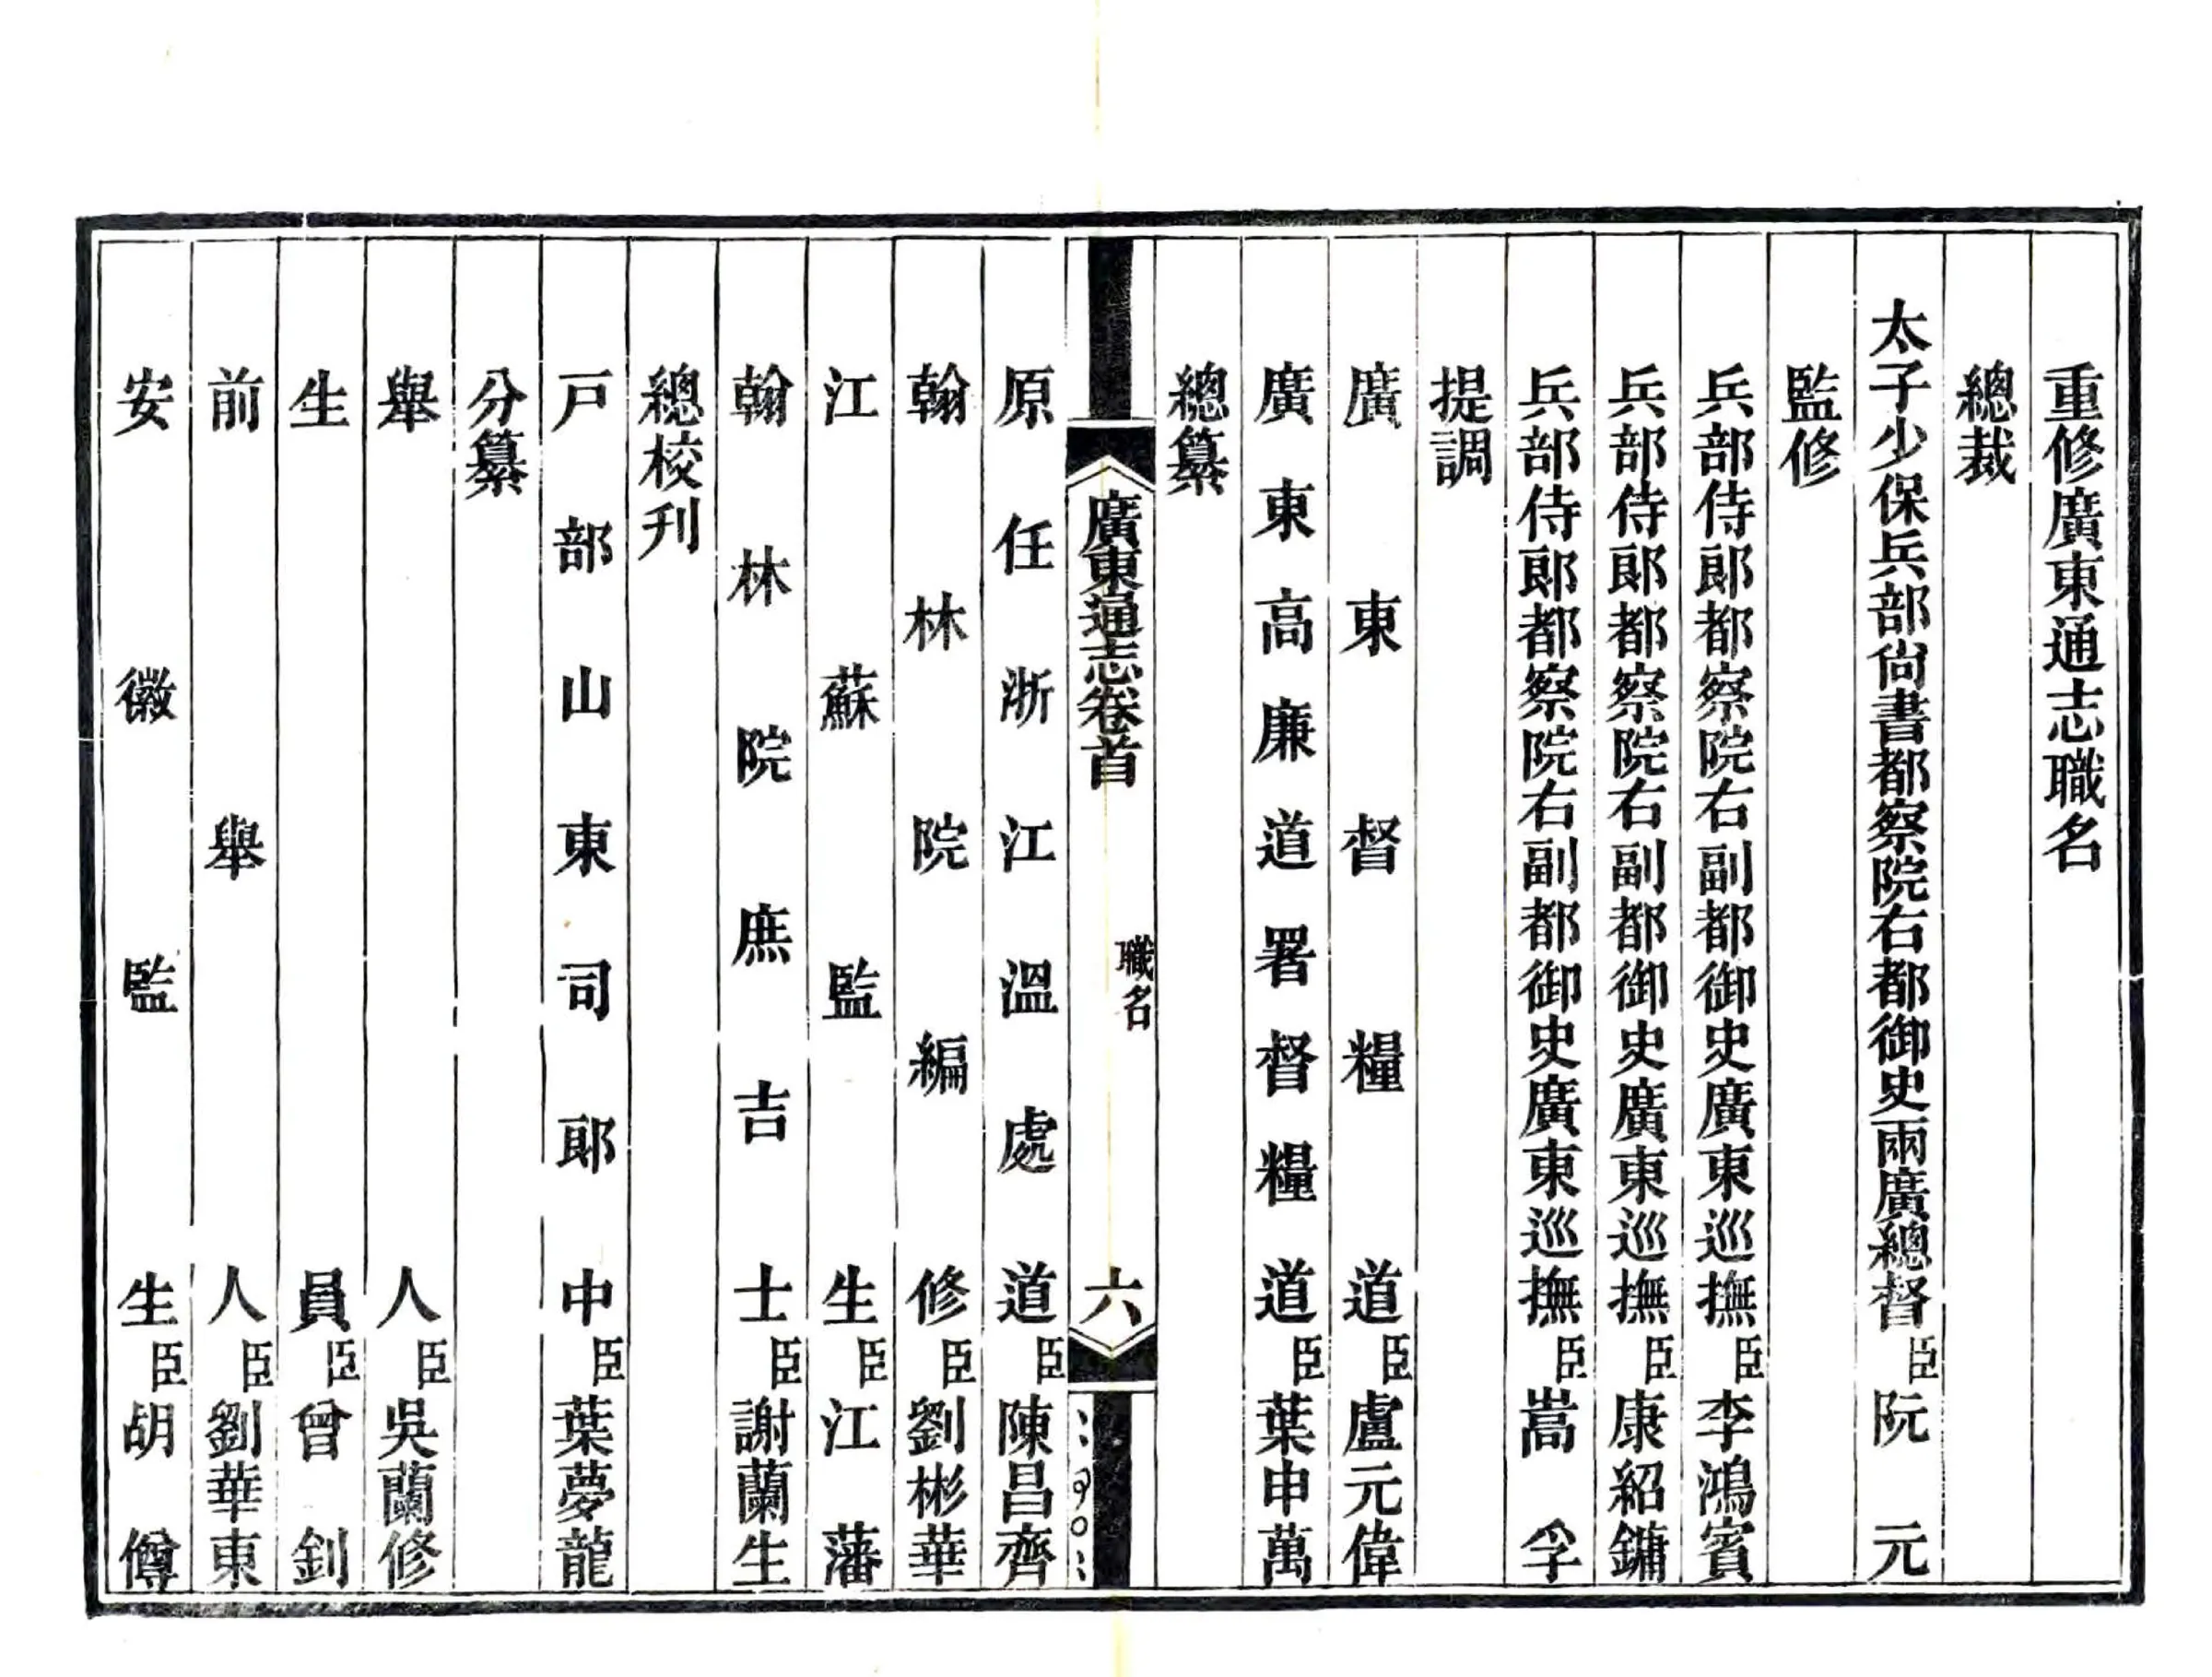 重修廣東通志職名
總裁
太子少保兵部尙書都察院右都御史兩廣總督臣阮元
監修
兵部侍郞都察院右副都御史廣東巡撫臣李鴻賓
兵部侍郞都察院右副都御史廣東巡撫臣康紹鏞
兵部侍郞都察院右副都御史廣東巡撫臣嵩孚
提調
廣東督糧道臣盧元偉
廣東高廉道署督糧道臣葉申萬
總纂
廣東通志卷首 職名 六
原任浙江溫處道臣陳昌齊
翰林院編修臣劉彬華
江蘇監生臣江藩
翰林院庶吉士臣謝蘭生
總校刋
戸部山東司郞中臣葉夢龍
分纂
舉人臣吳蘭修
生員臣曾釗
前舉人臣劉華東
安徽監生臣胡